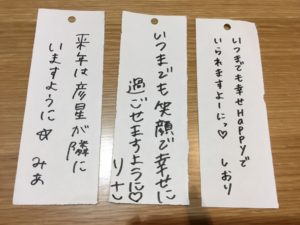 いつまでも幸せHappyで
いられますよーにっ♡
しおり
いつまでも笑顔で幸せに
過ごせますように♡
りさこ
来年は彦星が隣に
いますように☆
みあ